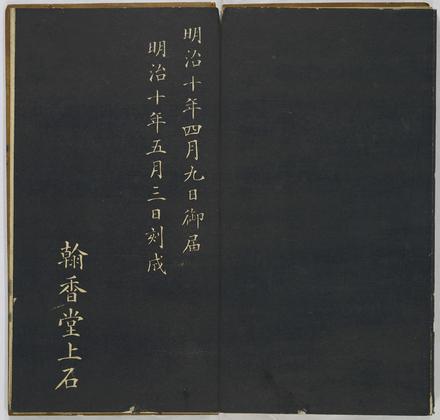 明治十年四月九日御届
明治十年五月三日刻成
翰香堂上石